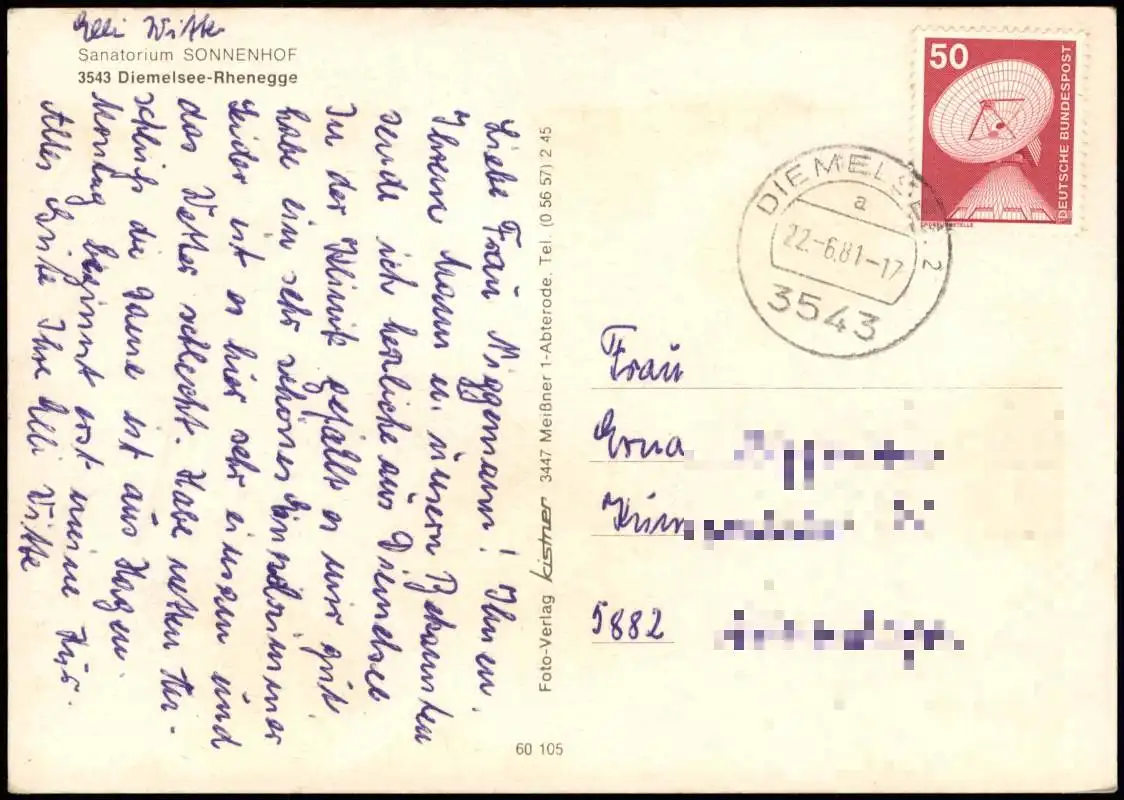 Elli Witte
Sanatorium SONNENHOF
3543 Diemelsee-Rhenegge
Liebe Frau Niggemann! Ihnen,
Ihrem Mann u. unsern Bekannten
sende ich herzliche aus Diemelsee
In der Klinik gefällt es mir gut
habe ein sehr schönes Einzelzimmer
Leider ist es hier sehr einsam und
das Wetter schlecht. Habe netten
schluß die Dame ist aus Hagen
Montag beginnt erst meine Kur.
Alles Gute Ihre Elli Witte
Foto-Verlag kistner 3447 Meißner 1-Abterode. Tel. (0 56 57) 2 45
60 105
50
DEUTSCHE BUNDESPOST
DIEMELSEE 2
a
22.-6.81-17
3543
Frau
Erna
5882